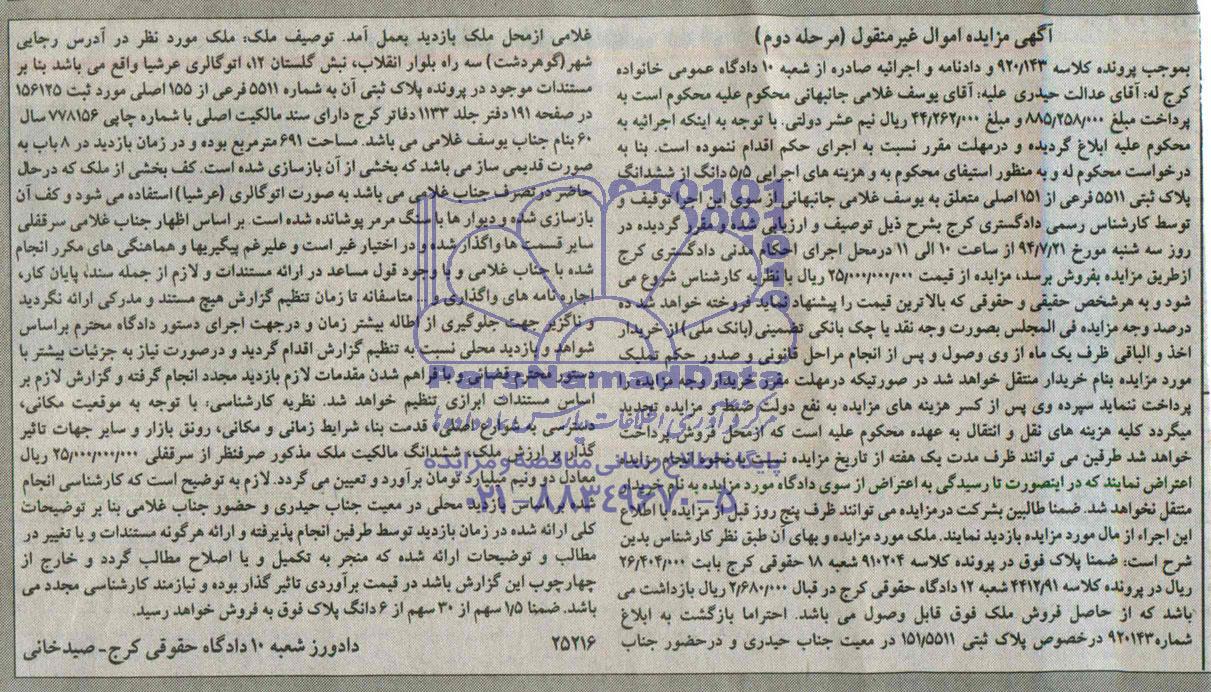 آگهی مزایده اموال غیرمنقول (مرحله دوم)
بموجب پرونده کلاسه ۹۲۰/۱۴۳ و دادنامه و اجرائیه صادره از شعبه ۱۰ دادگاه عمومی خانواده
کرج له: آقای عدالت حیدری علیه: آقای یوسف غلامی جانبهانی محکوم علیه محکوم است به
پرداخت مبلغ ۸۸۵/۲۵۸/۰۰۰ و مبلغ ۴۴/۲۶۲/۰۰۰ ریال نیم عشر دولتی. با توجه به اینکه اجرائیه به
محکوم علیه ابلاغ گردیده و درمهلت مقرر نسبت به اجرای حکم اقدام ننموده است. بنا به
درخواست محکوم له و به منظور استیفای محکوم به و هزینه های اجرایی ۵/۵ دانگ از ششدانگ
پلاک ثبتی ۵۵۱۱ فرعی از ۱۵۱ اصلی متعلق به یوسف غلامی جانبهانی از سوی این اجرا توقیف و
توسط کارشناس رسمی دادگستری کرج بشرح ذیل توصیف و ارزیابی شده و مقرر گردیده در
روز سه شنبه مورخ ۹۴/۷/۲۱ از ساعت ۱۰ الی ۱۱ درمحل اجرای احکام مدنی دادگستری کرج
ازطریق مزایده بفروش برسد، مزایده از قیمت ۲۵/۰۰۰/۰۰۰/۰۰۰ ریال با نظریه کارشناس شروع می
شود و به هرشخص حقیقی و حقوقی که بالاترین قیمت را پیشنهاد نماید فروخته خواهد شد ده
درصد وجه مزایده فی المجلس بصورت وجه نقد یا چک بانکی تضمینی(بانک ملی) از خریدار
اخذ و الباقی ظرف یک ماه از وی وصول و پس از انجام مراحل قانونی و صدور حکم تملیک
مورد مزایده بنام خریدار منتقل خواهد شد در صورتیکه درمهلت مقرر خریدار وجه مزایده را
پرداخت ننماید سپرده وی پس از کسر هزینه های مزایده به نفع دولت ضبط و مزایده تجدید
میگردد کلیه هزینه های نقل و انتقال به عهده محکوم علیه است که ازمحل فروش پرداخت
خواهد شد طرفین می توانند ظرف مدت یک هفته از تاریخ مزایده نسبت به نحوه انجام مزایده
اعتراض نمایند که در اینصورت تا رسیدگی به اعتراض از سوی دادگاه مورد مزایده به نام خریدار
منتقل نخواهد شد. ضمنا طالبین بشرکت درمزایده می توانند ظرف پنج روز قبل از مزایده با اطلاع
این اجراء از مال مورد مزایده بازدید نمایند. ملک مورد مزایده و بهای آن طبق نظر کارشناس بدین
شرح است: ضمنا پلاک فوق در پرونده کلاسه ۹۱۰۲۰۴ شعبه ۱۸ حقوقی کرج بابت ۲۶/۴۰۴/۰۰۰
ریال در پرونده کلاسه ۴۴۱۲/۹۱ شعبه ۱۲ دادگاه حقوقی کرج در قبال ۲/۶۸۰/۰۰۰ ریال بازداشت می
باشد که از حاصل فروش ملک فوق قابل وصول می باشد. احتراما بازگشت به ابلاغ
شماره۹۲۰۱۴۳ درخصوص پلاک ثبتی ۱۵۱/۵۵۱۱ در معیت جناب حیدری و درحضور جناب
غلامی ازمحل ملک بازدید بعمل آمد. توصیف ملک: ملک مورد نظر در آدرس رجایی
شهر(گوهردشت) سه راه بلوار انقلاب، نبش گلستان ۱۲، اتوگالری عرشیا واقع می باشد بنا بر
مستندات موجود در پرونده پلاک ثبتی آن به شماره ۵۵۱۱ فرعی از ۱۵۵ اصلی مورد ثبت ۱۵۶۱۲۵
در صفحه ۱۹۱ دفتر جلد ۱۱۳۳ دفاتر کرج دارای سند مالکیت اصلی با شماره چاپی ۷۷۸۱۵۶ سال
۶۰ بنام جناب یوسف غلامی می باشد. مساحت ۶۹۱ مترمربع بوده و در زمان بازدید در ۸ باب به
صورت قدیمی ساز می باشد که بخشی از آن بازسازی شده است. کف بخشی از ملک که درحال
حاضر در تصرف جناب غلامی می باشد به صورت اتوگالری (عرشیا) استفاده می شود و کف آن
بازسازی شده و دیوار ها با سنگ مرمر پوشانده شده است. بر اساس اظهار جناب غلامی سرقفلی
سایر قسمت ها واگذار شده و در اختیار غیر است و علیرغم پیگیریها و هماهنگی های مکرر انجام
شده با جناب غلامی و با وجود قول مساعد در ارائه مستندات و لازم از جمله سند، پایان کار،
اجاره نامه های واگذاری و... متاسفانه تا زمان تنظیم گزارش هیچ مستند و مدرکی ارائه نگردید
و ناگزیر جهت جلوگیری از اطاله بیشتر زمان و درجهت اجرای دستور دادگاه محترم براساس
شواهد و بازدید محلی نسبت به تنظیم گزارش اقدام گردید و درصورت نیاز به جزئیات بیشتر با
دستور محترم قضائی و با فراهم شدن مقدمات لازم بازدید مجدد انجام گرفته و گزارش لازم بر
اساس مستندات ابرازی تنظیم خواهد شد. نظریه کارشناسی، با توجه به موقعیت مکانی،
دسترسی به شوارع اصلی، قدمت بنا، شرایط زمانی و مکانی، رونق بازار و سایر جهات تاثیر
گذار بر ارزش ملک، ششدانگ مالکیت ملک مذکور صرفنظر از سرقفلی ۲۵/۰۰۰/۰۰۰/۰۰۰ ریال
معادل دو ونیم میلیارد تومان برآورد و تعیین می گردد. لازم به توضیح است که کارشناسی انجام
شده براساس بازدید محلی در معیت جناب حیدری و حضور جناب غلامی بنا بر توضیحات
کلی ارائه شده در زمان بازدید توسط طرفین انجام پذیرفته و ارائه هرگونه مستندات و یا تغییر در
مطالب و توضیحات ارائه شده که منجر به تکمیل و یا اصلاح مطالب گردد و خارج از
چهارچوب این گزارش باشد در قیمت برآوردی تاثیر گذار بوده و نیازمند کارشناسی مجدد می
باشد. ضمنا ۱/۵ سهم از ۳۰ سهم از ۶ دانگ پلاک فوق به فروش خواهد رسید.
۲۵۲۱۶
دادورز شعبه ۱۰ دادگاه حقوقی کرج - صیدخانی
ParsNamadData
پایگاه اطلاع رسانی مناقصه و مزایده
۰۲۱-۸۸۳۴۹۶۷۰-۵